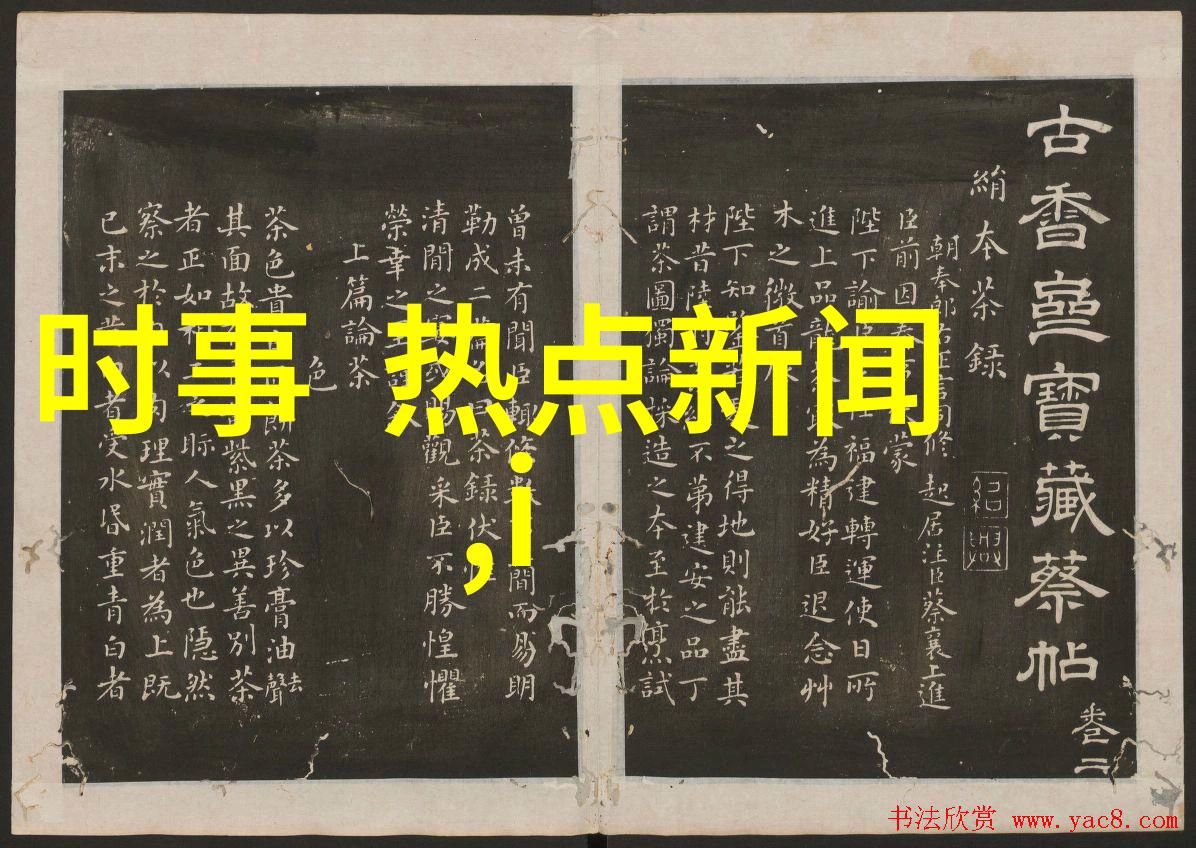 时事 热点新闻
,i
古香齋寶藏蔡帖 卷二
絹本茶錄
紹興
朝奉郎右正言同修起居注臣蔡襄上進
臣前因奏 蒙
陛下諭臣 任福建轉運使日所
進上品 為精好臣退念艸
木之微首
陛下知 之得地則能盡其
材昔陸 不第建安之品丁
謂茶圖獨論採造之本至於烹試
曾未有聞臣輒條數 簡而易明
勒成二 曰茶錄伏
清閒之宴或賜觀采臣不勝惶懼
榮幸之
上篇論茶
色
茶色貴 餅茶多以珍膏油去聲
其面故 紫黑之異善別茶
者正如相 眎人氣色也隱然
察之於 以肉理實潤者為上既
已末之黃白者受水昏重青白者
书法欣赏 www.yac8.com